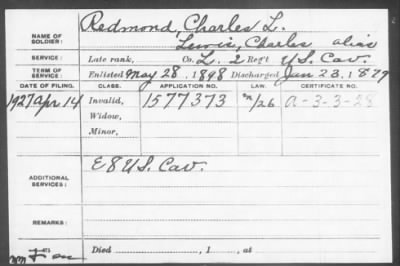 Redmond, Charles L.
NAME OF SOLDIER:
Lewis, Charles alias
SERVICE: Late rank, Co. L. 2 Reg't U.S. Cav.
TERM OF SERVICE: Enlisted May 28, 1898 Discharged Jan 23, 1899
DATE OF FILING. CLASS. APPLICATION NO. CERTIFICATE NO.
1927 Apr 14 Invalid, 1577373 /26 A-3-3-28
Widow,
Minor,
ADDITIONAL SERVICES: E 8 U.S. Cav.
REMARKS:
Died , 1 , at